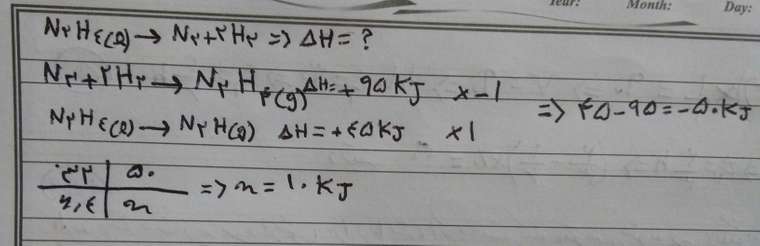 Year: Month: Day:
N۲H٤(l) → N۲+۲H۲ => ΔH= ?
N۲+۲H۲ → N۲H۴(g) ΔH= +۹۵ KJ ×-۱
N۲H٤(l) → N۲H(l) ΔH= +٤۵KJ ×۱
=> ۴۵-۹۵=-۵۰KJ
۳۲ | ۵۰
۶,٤ | x => x= ۱۰ KJ